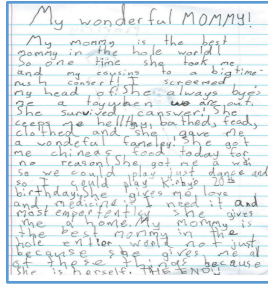 My wonderful MOMMY!
My mommy is the best
mommy in the hole world!
So one time she took me
and my cousins to a bigtime-
rush consert! I screemed
my head off! She always bye's
me a toy when we are out.
She survived canser! She
keeps me hellthy, bathed, fead,
clothed and she gave me
a wondeful fameley. She got
me chinees food today for
no reason! She got me a wii
so we could play just dance and
so I could play Kirbys 20th
birthday. She gives me love
and medicine I need it and
most emportently she gives
me a home. My mommy is
the best mommy in the
hole entier world not just
because she gives me all
of these things because
she is herself. THE END!